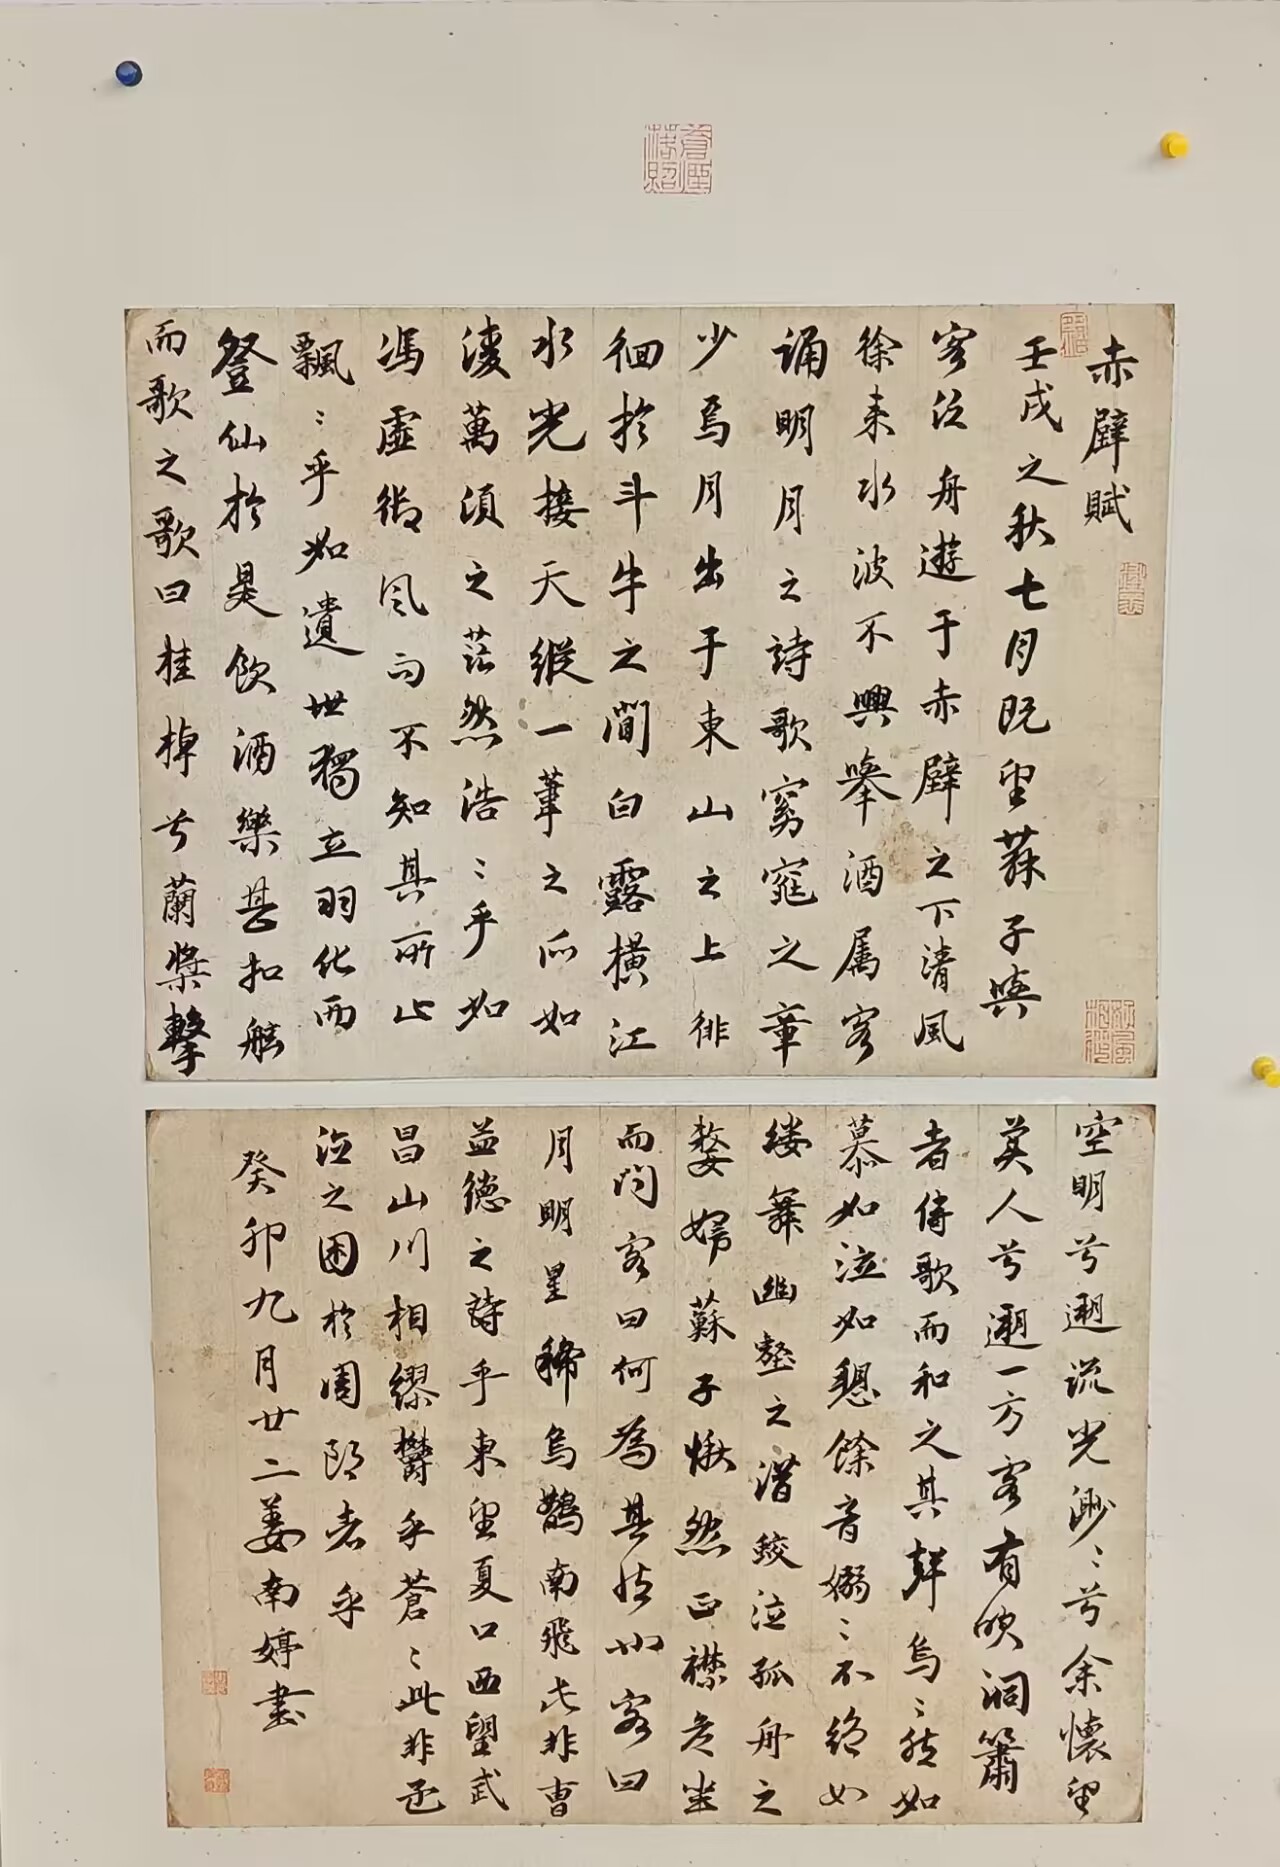 赤壁賦
壬戌之秋七月既望蘇子與
客泛舟遊于赤壁之下清風
徐来水波不興舉酒属客
誦明月之詩歌窈窕之章
少焉月出于東山之上徘
徊於斗牛之間白露橫江
水光接天縱一葦之所如
淩萬頃之茫然浩〻乎如
馮虛御風而不知其所止
飄〻乎如遺世獨立羽化而
登仙於是飲酒樂甚扣舷
而歌之歌曰桂棹兮蘭槳擊
空明兮遡流光渺〻兮余懷望
美人兮遡一方客有吹洞簫
者倚歌而和之其聲烏〻然如
慕如泣如怨餘音嫋〻不絕如
縷舞幽壑之潛蛟泣孤舟之
嫠婦蘇子愀然正襟危坐
而問客曰何為其然也客曰
月明星稀烏鵲南飛此非曹
益德之詩乎東望夏口西望武
昌山川相繆鬱乎蒼〻此非孟
泣之困於周郎者乎
癸卯九月廿二姜南婷書